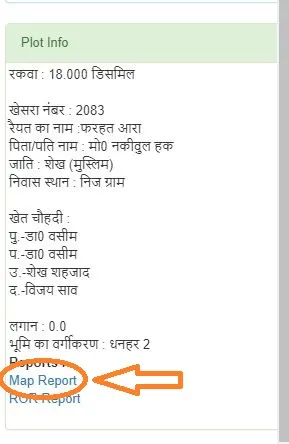 Plot Info
रकवा : 18.000 डिसमिल
खेसरा नंबर : 2083
रैयत का नाम :फरहत आरा
पिता/पति नाम : मो0 नकीवुल हक
जाति : शेख (मुस्लिम)
निवास स्थान : निज ग्राम
खेत चौहदी :
पु.-डा0 वसीम
प.-डा0 वसीम
उ.-शेख शहजाद
द.-विजय साव
लगान : 0.0
भूमि का वर्गीकरण : धनहर 2
Reports :
Map Report
ROR Report